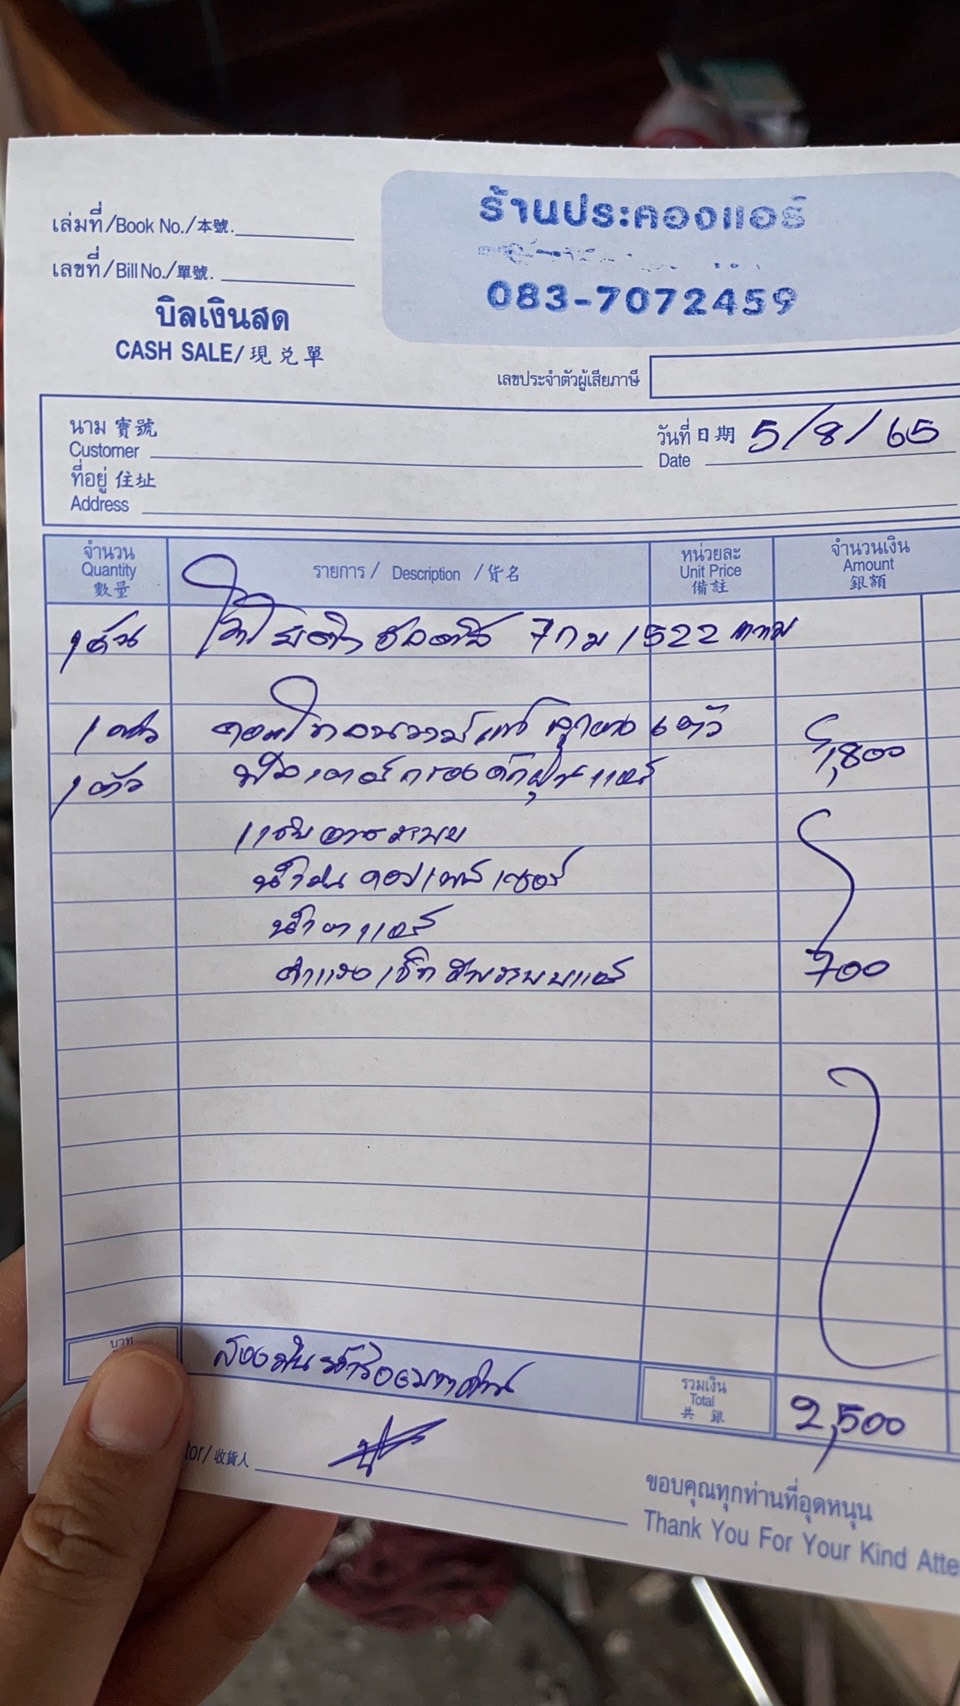 เล่มที่/Book No./本號.
ร้านประคองแอร์
เลขที่/Bill No./單號.
083-7072459
บิลเงินสด
CASH SALE/現兑單
เลขประจำตัวผู้เสียภาษี
นาม 寶號
Customer
วันที่ 日期 5/8/65
Date
ที่อยู่ 住址
Address
จำนวน
Quantity
數量
รายการ / Description / 貨名
หน่วยละ
Unit Price
備註
จำนวนเงิน
Amount
銀額
1 คัน 7กม 1522 กทม
1 ตัว คอมโทลนวาล์แท้ ลูกยาง 6 ตัว
1,800
1 ตัว ฟิลเตอร์กรองดักฝุ่นแอร์
น้ำมันคอมเพรสเซอร์
น้ำยาแอร์
ค่าแรงเช็คระบบแอร์ 700
บาท
สองพันห้าร้อยบาทถ้วน
รวมเงิน
Total
共 銀
2,500
tor/收貨人
ขอบคุณทุกท่านที่อุดหนุน
Thank You For Your Kind Atte